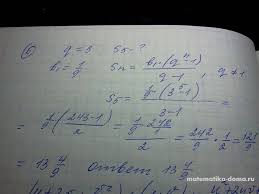 ⑤ q = 3 S5 - ?
b1 = 1/9 Sn = b1·(q^n -1) / q-1 , q ≠ 1
S5 = 1/9·(3^5-1) / 3-1 =
= 1/9·(243-1) / 2 = 1/9·242 / 2 = 242/9 · 1/2 = 121/9
= 13 4/9 ответ 13 4/9
matematika-doma.ru